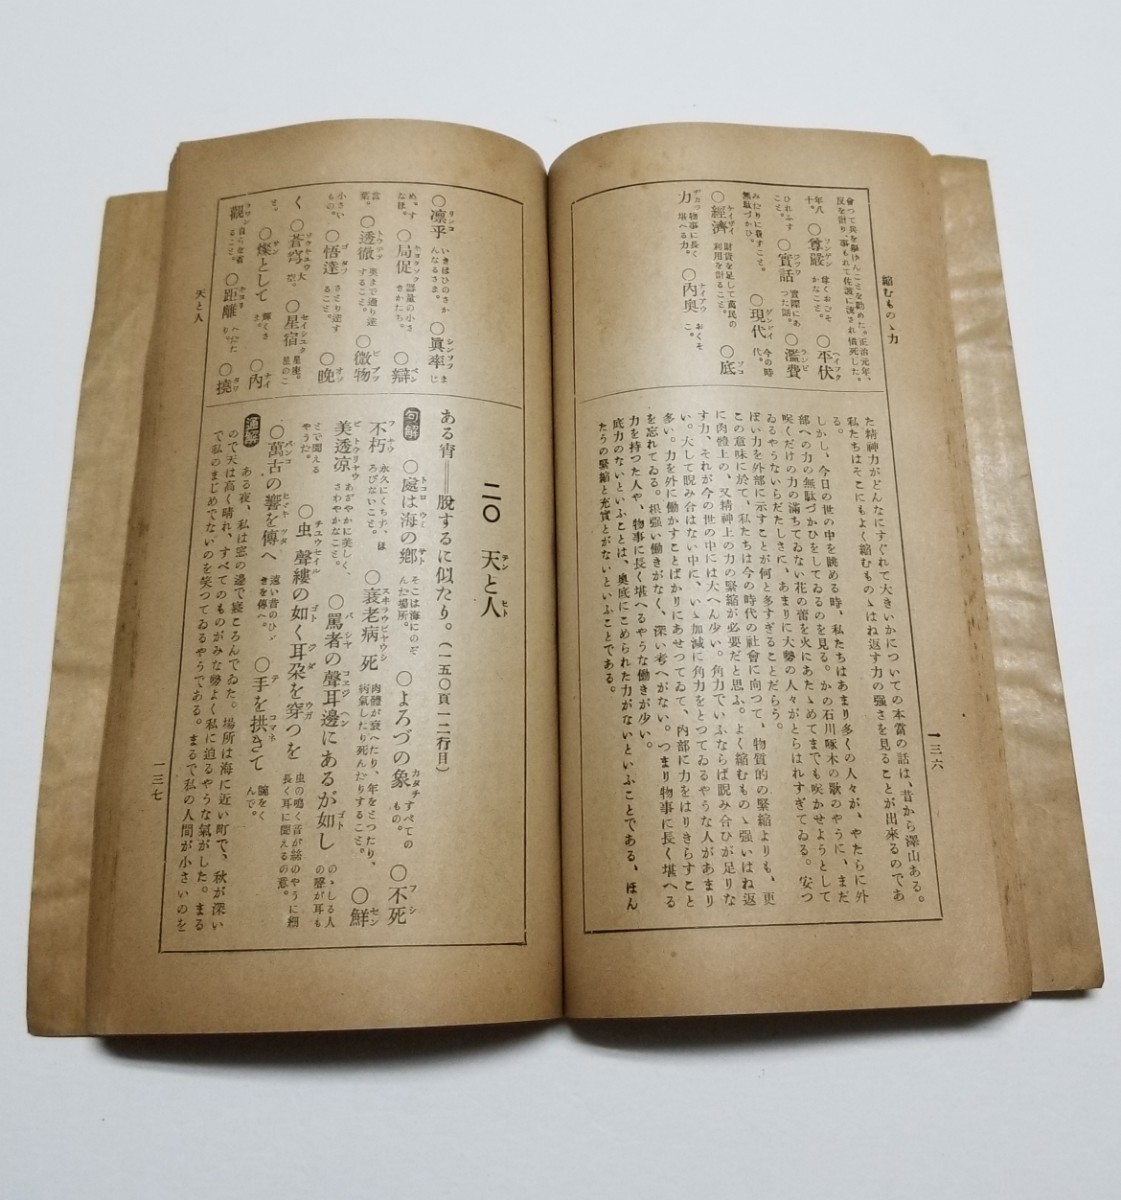 縮むものゝ力
一三六
會つて其を擧げんことを勸めた。正治元年、
反を計り、事もれて佐渡に流され憤死した。
年八十。 ○尊嚴 尊くおごそかなこと。 ○平伏
ひれふすこと。 ○實話 實際にあつた話。 ○濫費
みだりに費すこと。無駄づかひ。 ○現代 今の時代。
○經濟 財貨を足して萬民の利用を計ること。 ○底
力 物事に長く堪へる力。 ○內奥 おくそこ。
た精神力がどんなにすぐれて大きいかについての本當の話は、昔から澤山ある。
私たちはそこにもよく縮むものゝはね返す力の强さを見ることが出來るのであ
る。
しかし、今日の世の中を眺める時、私たちはあまり多くの人々が、やたらに外
部への力の無駄づかひをしてゐるのを見る。かの石川啄木の歌のやうに、まだ
咲くだけの力の滿ちてゐない花の蕾を火にあたゝめてまでも咲かせようとして
ゐるやうないらだたしさに、あまりに大勢の人々がとらはれすぎてゐる。安つ
ぽい力を外部に示すことが何と多すぎることだらう。
この意味に於て、私たちは今の時代の社會に向つて、物質的の緊縮よりも、更
に肉體上の、又精神上の力の緊縮が必要だと思ふ。よく縮むものゝ强いはね返
す力、それが今の世の中には大へん少い。角力でいふならば睨み合ひが足りな
い。大して睨み合はない中に、いゝ加減に角力をとつてゐるやうな人があまり
多い。力を外に働かすことばかりにあせつてゐて、內部に力をはりきらすこと
を忘れてゐる。根强い働きがなく、深い考へがない。つまり物事に長く堪へる
力を持つた人や、物事に長く堪へるやうな働きが少い。
底力のないといふことは、奥底にこめられた力がないといふことである、ほん
たうの緊縮と充實とがないといふことである。
○凛乎 いきほひのさかんなるさま。 ○眞率 まじ
め。すなほ。 ○局促 器量の小さきかたち。 ○辯
言葉。 ○透徹 奥まで通り達すること。 ○微物
小さいもの。 ○悟達 さとり達すること。 ○晩
く ○蒼穹 大空。 ○星宿 星座。星のこ
と。 ○燦として 輝くさま。 ○內
觀 自らを省ること。 ○距離 へだたり。 ○撓
二〇 天と人
ある宵――脫するに似たり。（一五〇頁一二行目）
句解 ○處は海の鄕 そこは海にのぞんだ場所。 ○よろづの象 すべてのもの。 ○不死
不朽 永久にくちず、ほろびないこと。 ○衰老病死 肉體が衰へたり、年をとつたり、病氣したり死んだりすること。 ○鮮
美透凉 あざやかに美しく、さわやかなこと。 ○罵者の聲耳邊にあるが如し のゝしる人の聲が耳も
とで聞えるやうだ。 ○虫聲縷の如く耳朶を穿つを 虫の鳴く音が絲のやうに細長く耳に聞えるの意。
○萬古の響を傳へ 遠い昔のひゞきを傳へ。 ○手を拱きて 腕をくんで。
通解 ある夜、私は窓の邊で寢ころんでゐた。場所は海に近い町で、秋が深い
ので天は高く晴れ、すべてのものがみな勢よく私に迫るやうな氣がした。まる
で私のまじめでないのを笑つてゐるやうである。まるで私の人間が小さいのを
天と人
一三七